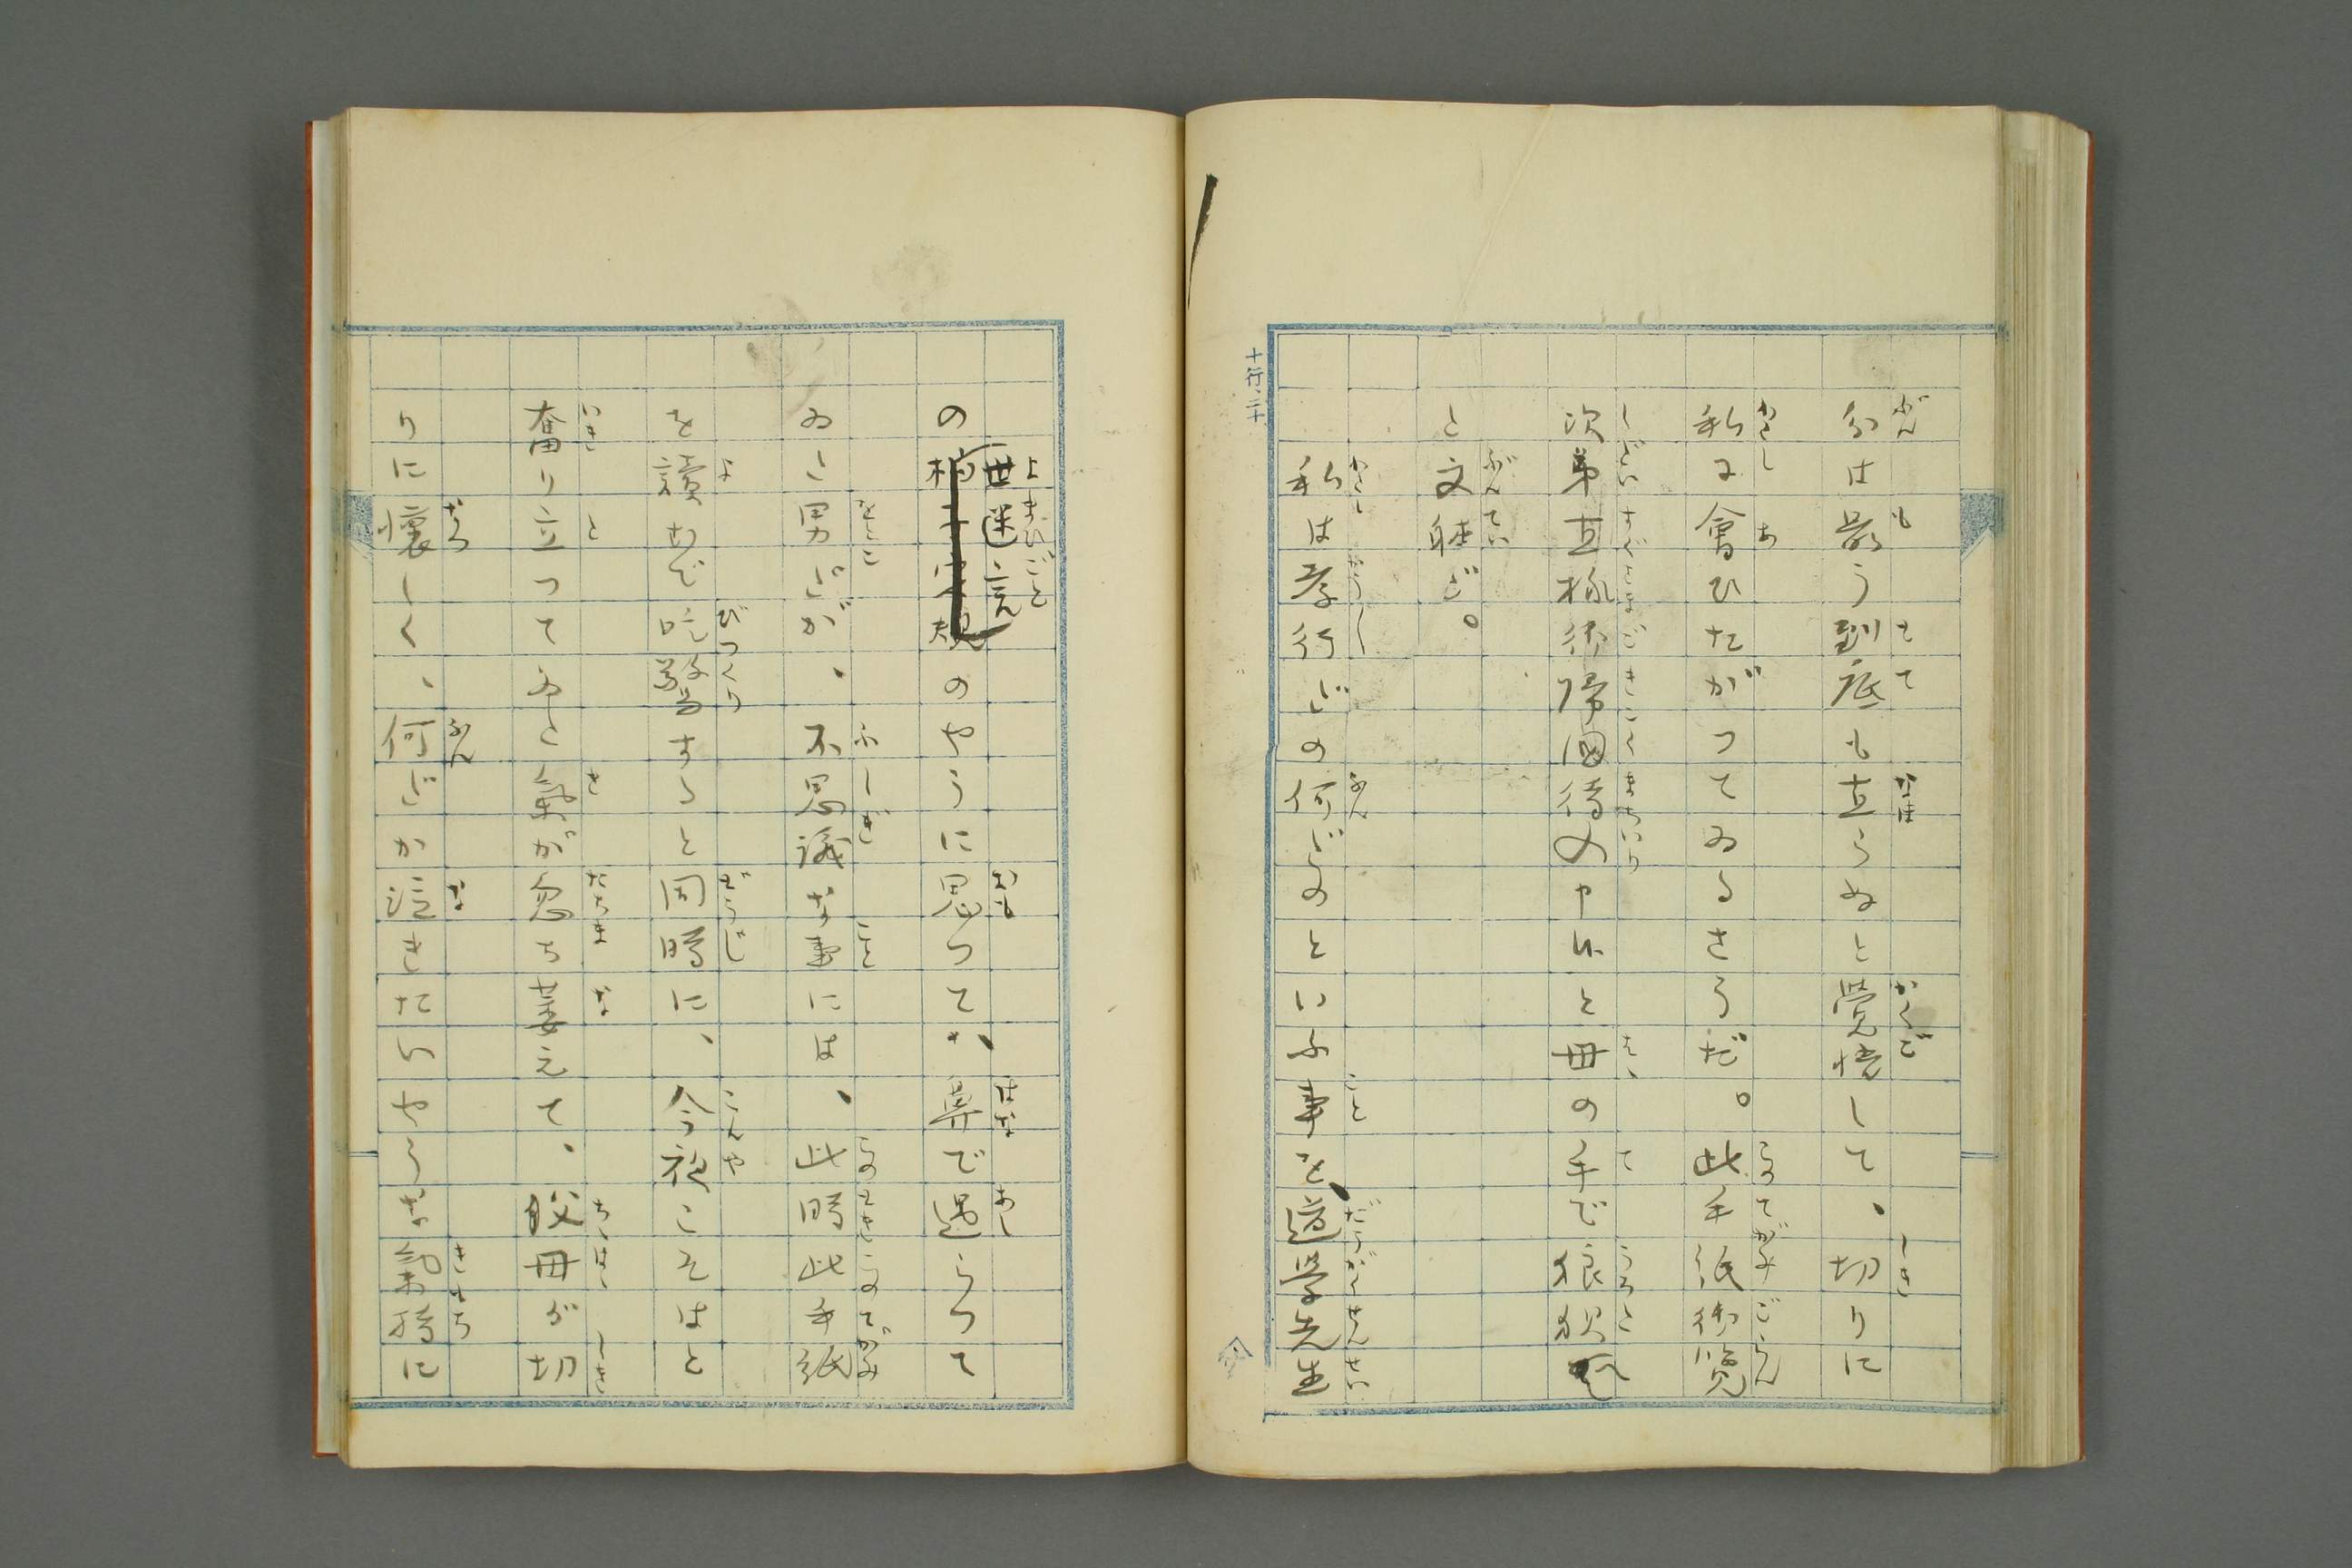 分は最う到底も直らぬと覺悟して、切りに
私に會ひたがつてゐるさうだ。此手紙御覧
次第直樣御帰国待入申候と母の手で狼狽て
と文躰だ。
私は孝行だの何だのといふ事を、道學先生
十行二十
の世迷言のやうに思つて、鼻で遇らつて
ゐた男だが、不思議な事には、此時此手紙
を讀むで吃驚すると同時に、今夜こそはと
奮り立つてゐた氣が忽ち萎えて、父母が切
りに懐しく、何だか泣きたいやうな氣持に